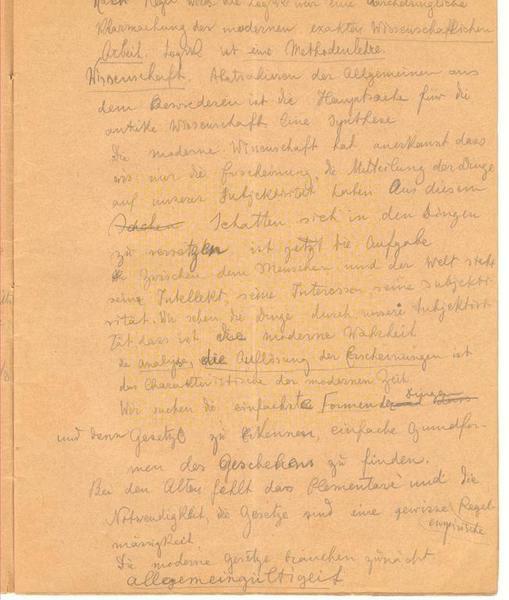 Klarmachung der modernen exakten Wissenschaftlichen
Arbeit. Logik ist eine Methodenlehre.
Wissenschaft. Abstrakieren der Allgemeinen aus
dem Besonderen ist die Hauptsache für die
antike Wissenschaft Eine Synthese
Die moderne Wissenschaft hat anerkannt dass
wir nur die Erscheinung, die Mitteilung der Dinge
auf unserer Subjektivität haben Aus diesem
Schatten sich in den Dingen
zu versetzen ist jetzt die Aufgabe
Zwischen dem Menschen und der Welt steht
seine Intellekt, seine Interessen seine Subjekti-
vität. Wir sehen die Dinge durch unsere Subjektivi-
tät dass ist die moderne Wahrheit
die analyse, die Auflösung der Erscheinungen ist
das Charakteristische der modernen Zeit
Wir suchen die einfachste Formen der Dinge
und dann Gesetze zu erkennen, einfache Grundfor-
men des Geschehens zu finden.
Bei den Alten fehlt das Elementare und die
Notwendigkeit, die Gesetze sind eine gewisse Regel-
empirische
mässigkeit
Die moderne gesetze brauchen zunächst
allgemeingültigkeit